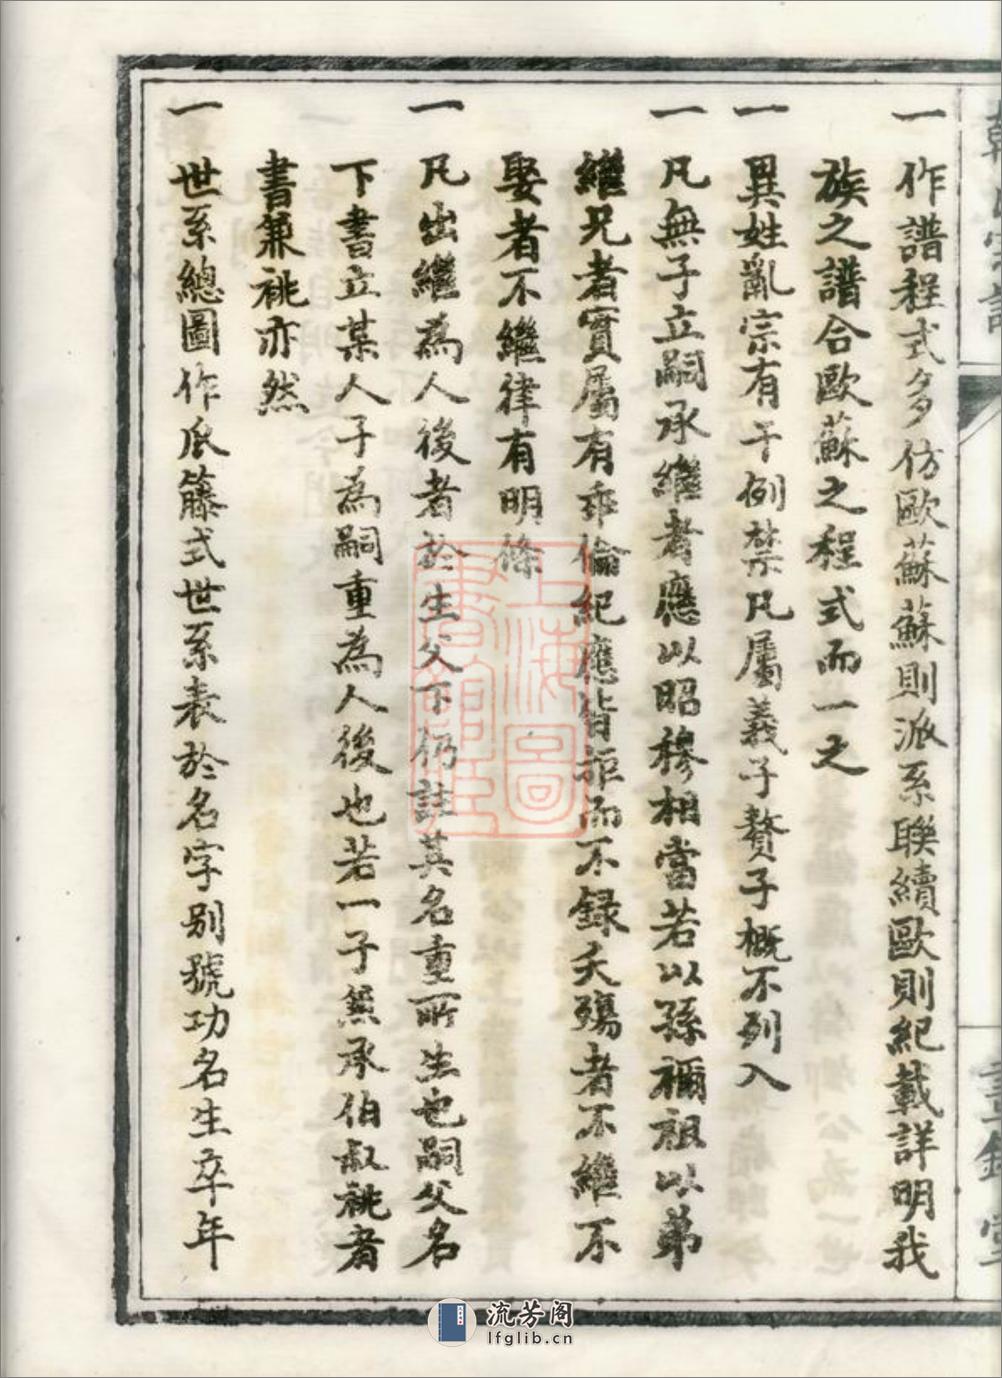 一作譜程式多仿歐蘇蘇則派系聯續歐則紀載詳明我
族之譜合歐蘇之程式而一之
一異姓亂宗有干例禁凡屬義子贅子概不列入
一凡無子立嗣承繼者應以昭穆相當若以孫禰祖以弟
繼兄者實屬有乖倫紀應皆拒而不録夭殤者不繼不
娶者不繼律有明條
一凡出繼為人後者於生父下仍註其名重所生也嗣父名
下書立某人子為嗣重為人後也若一子兼承伯叔祧者
書兼祧亦然
一世系總圖作瓜籐式世系表於名字别號功名生卒年
上海圖書館藏
流芳阁
lfglib.cn